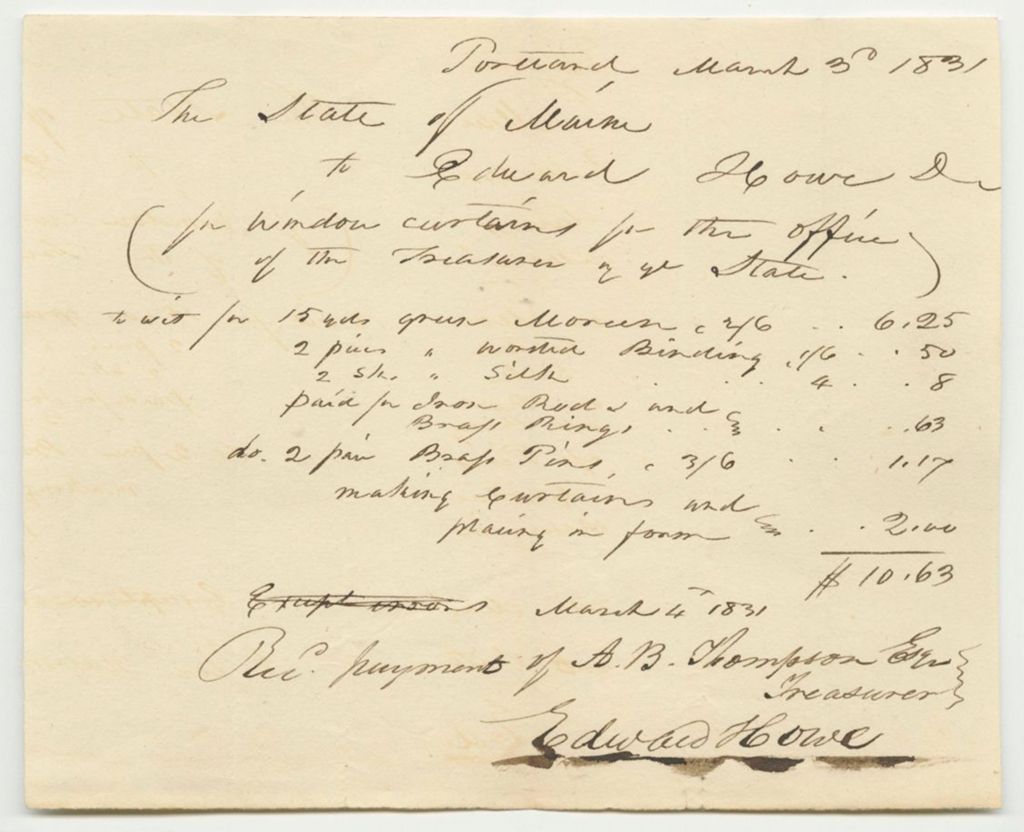 Portland March 3d 1831
The State of Maine
to Edward Howe Dr
(for window curtains for the office
of the Treasurer of ye State.)
to wit for 15 yds green Moreen c 2/6 .. 6.25
2 pieces " worsted Binding, 1/6 . . 50
2 Sk. " Silk . . . 4 . . 8
paid for Iron Rods and
Brass Rings . . . . .63
do. 2 pair Brass Pins, c 3/6 . . 1.17
making Curtains and
placing in form . . 2.00
$ 10.63
Except errors March 4th 1831
Recd. payment of A. B. Thompson Esqr
Treasurer
Edward Howe